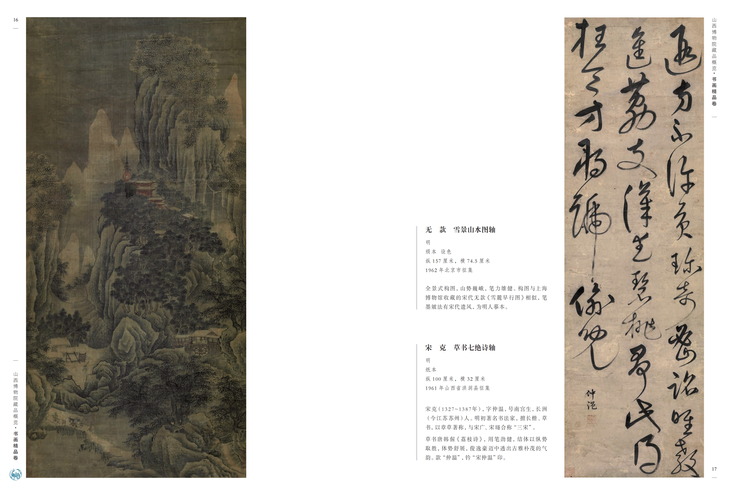 16
山西博物院藏品概览·书画精品卷
无 款 雪景山水图轴
明
绢本 设色
纵 157 厘米，横 74.3 厘米
1962 年北京市征集
全景式构图。山势巍峨，笔力雄健。构图与上海
博物馆收藏的宋代无款《雪麓早行图》相似，笔
墨皴法有宋代遗风，为明人摹本。
宋 克 草书七绝诗轴
明
纸本
纵 100 厘米，横 32 厘米
1961 年山西省洪洞县征集
宋克（1327~1387年），字仲温，号南宫生，长洲
（今江苏苏州）人。明初著名书法家，擅长楷、草
书，以章草著称，与宋广、宋璲合称“三宋”。
草书唐韩偓《荔枝诗》，用笔劲健，结体以纵势
取胜，体势舒展，俊逸豪迈中透出古雅朴茂的气
韵。款“仲温”，钤“宋仲温”印。
遐方不許貢珎奇密詔唯教
進荔支漢武碧桃爭比得
枉令方朔號偷兒
仲温
山西博物院藏品概览·书画精品卷
17